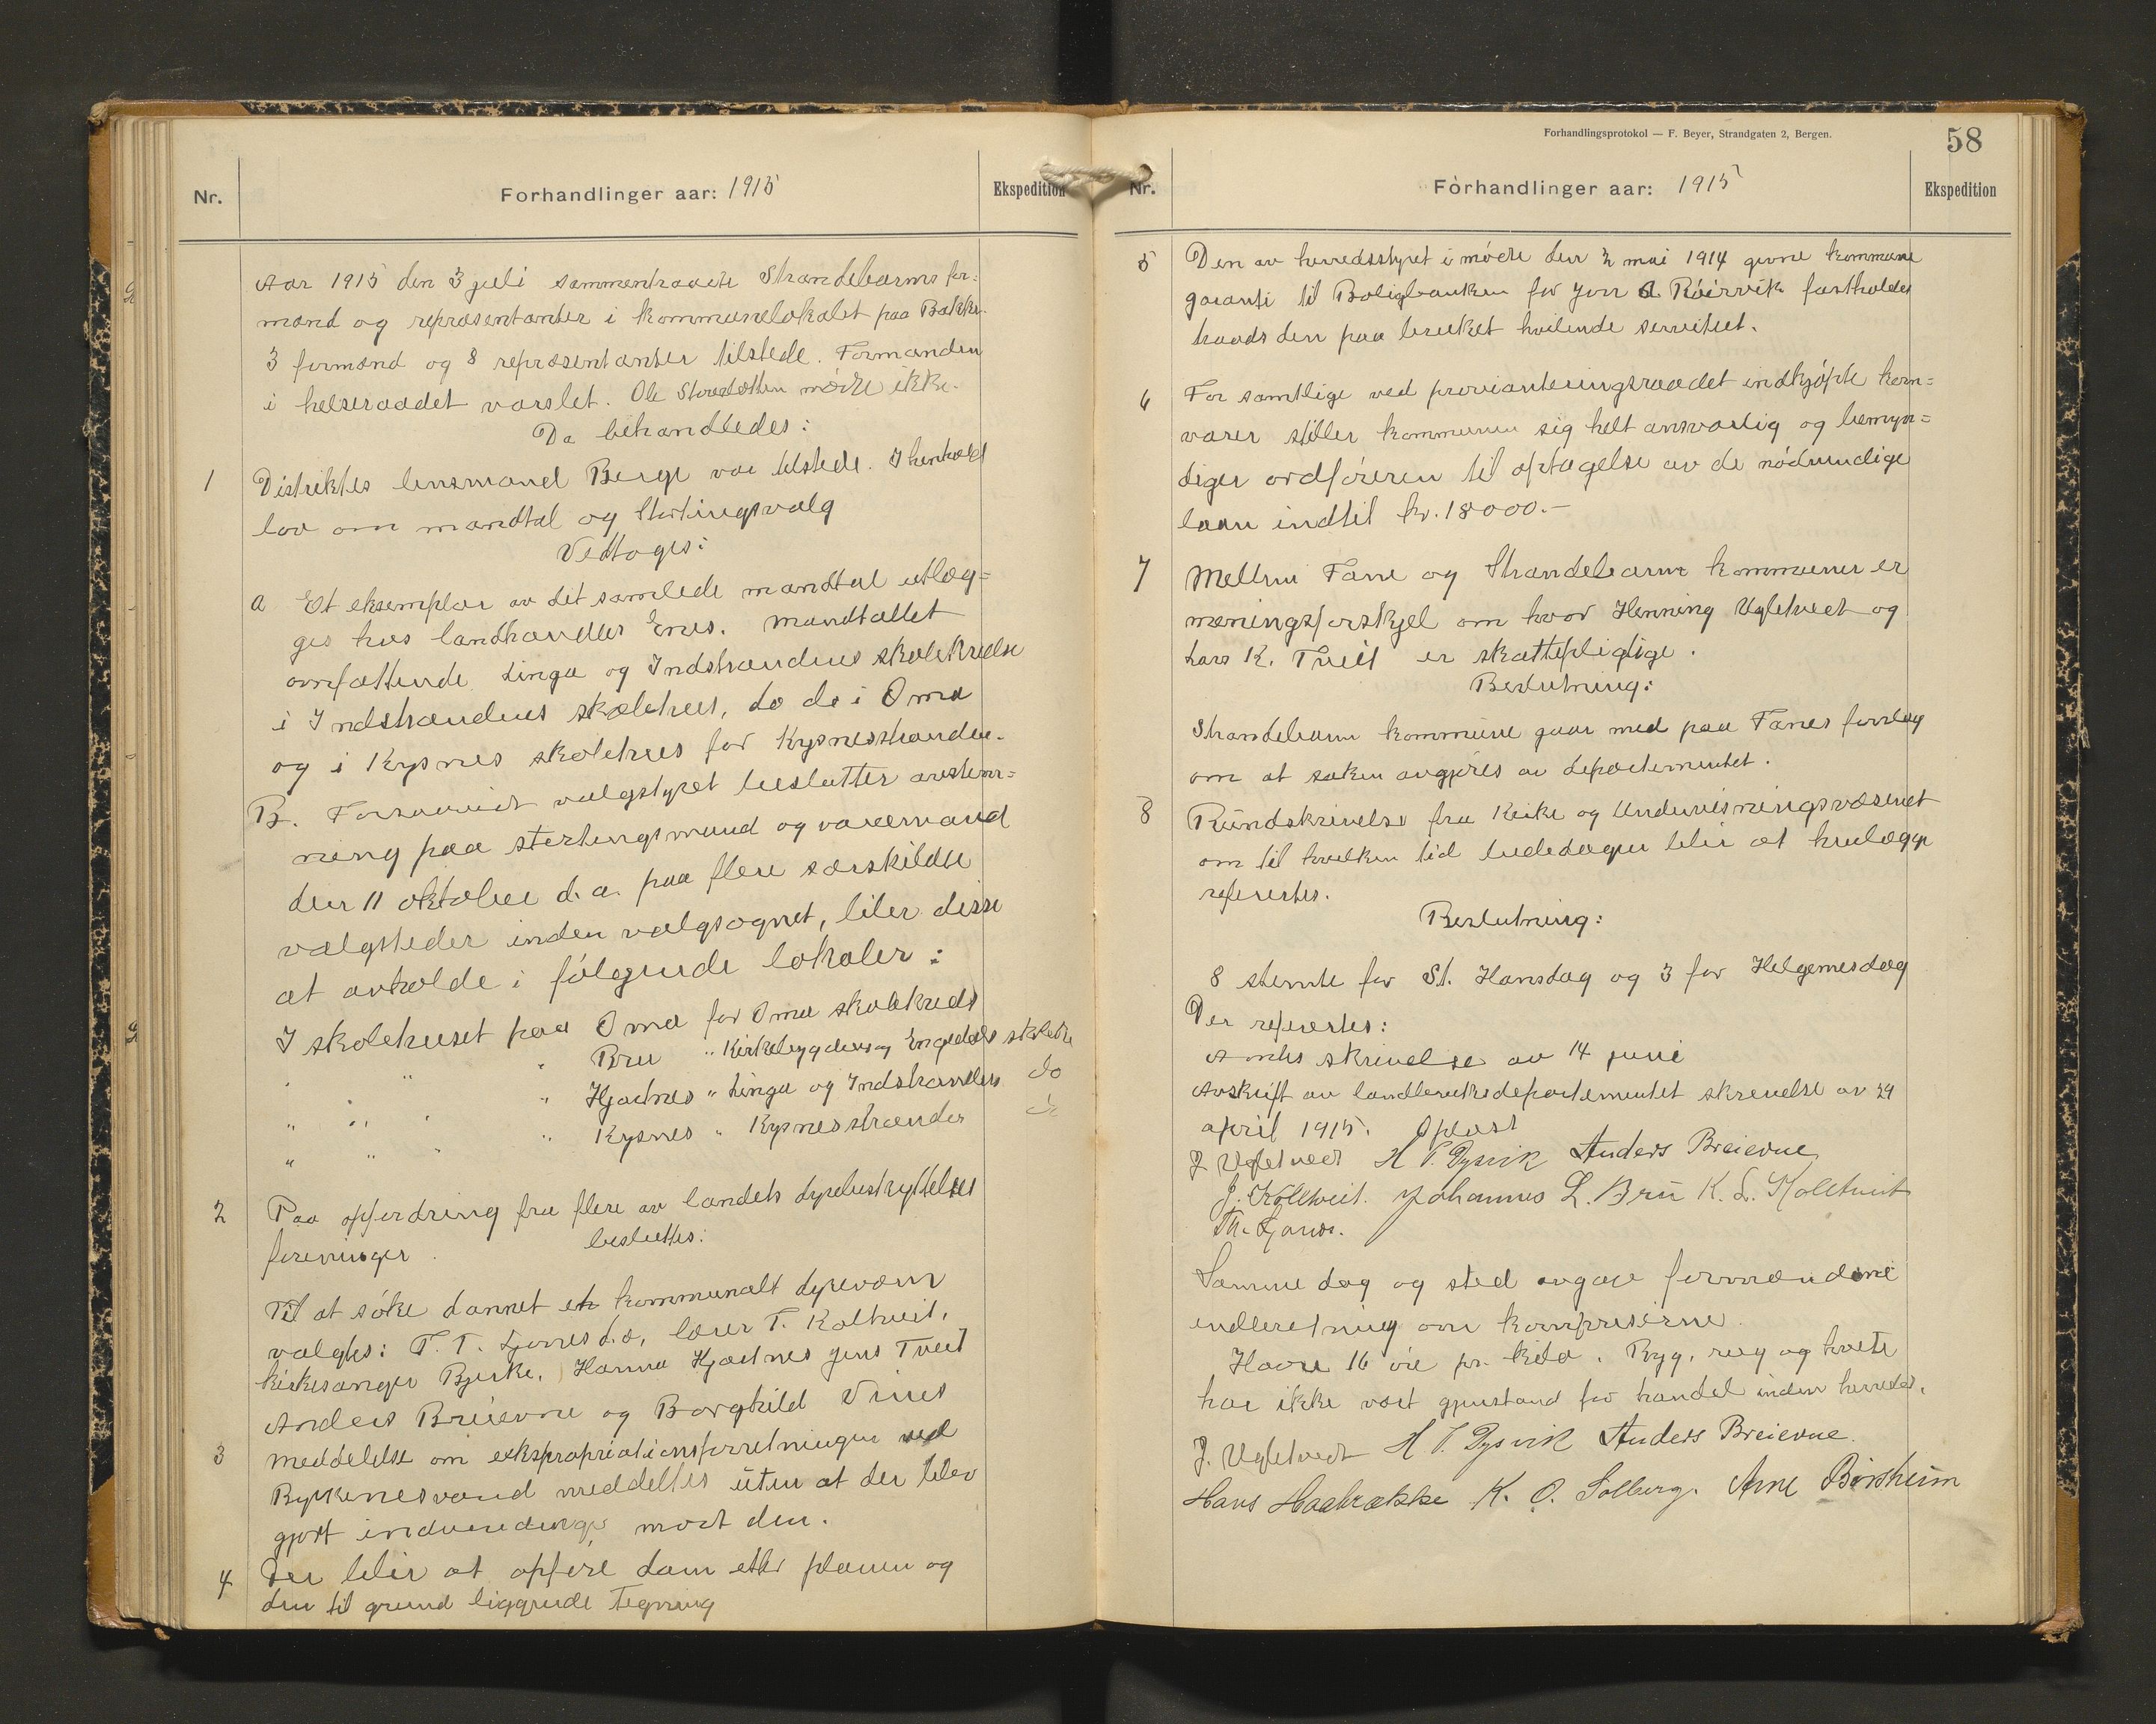 Nr.
Forhandlinger aar: 1915
Ekspedition
Aar 1915 den 3 juli sammentraadte Strandebarms for=
mænd og repræsentanter i kommunelokalet paa Bakke.
3 formænd og 8 repræsentanter tilstede. Formanden
i helseraadet varslet. Ole mødte ikke.
Da behandledes:
1 Distriktes lensmand Berge var tilstede. I henhold
lov om mandtal og Stortingsvalg
Vedtoges:
a Et eksemplar av det samlede mandtal utlæg=
ges hos landhandler Enes. Mandtallet
omfattende Linga og Indstrandens skolekredse
i Indstrandens skolehus, do do i Oma
og i Kysnes skolehus for Kysnesstranden.
B. Forsaavidt valgstyret beslutter avstem=
ning paa stortingsmand og varamand
den 11 oktober d.a. paa flere særskildte
valgsteder inden valgsognet, blir disse
at avholde i følgende lokaler:
I skolehuset paa Oma for Oma skolekreds
" " " Bru " Kirkebygdens og Engedals skolekr
" " " " Hjartnes " Linga og Indstrandens do
" " " " Kysnes " Kysnesstranden do
2 Paa opfordring fra flere av landets dyrebeskyttelses
foreninger
besluttes:
Til at søke dannet et kommunalt dyrevern
valgtes: T. T. Ljones d.æ, lærer T. Koltveit,
kirkesanger Bjerke, Hanna Hjartnes Jens Tveit
Anders Breievne og Borghild Vines
3 Meddelelse om ekspropriationsforretningen ved
Rykkenesvand meddeltes uten at der blev
gjort indvendinger mot den.
4 Der blir at opføre dam efter planen og
den til grund liggende tegning
Forhandlingsprotokol — F. Beyer, Strandgaten 2, Bergen.
58
Nr.
Forhandlinger aar: 1915
Ekspedition
5 Den av herredsstyret i møde den 2 mai 1914 givne kommune
garanti til Boligbanken for Jon A. Røirvik fastholdes
traads den paa bruket hvilende servitut.
6 For samtlige ved provianteringsraadet indkjøpte korn=
varer stiller kommunen sig helt ansvarlig og bemyn=
diger ordføreren til optagelse av de nødvendige
laan indtil kr. 18000.-
7 Mellem Fane og Strandebarm kommuner er
meningsforskjel om hvor Henning Ugletveit og
Lars K. Tveit er skattepligtige.
Beslutning:
Strandebarm kommune gaar med paa Fanes forslag
om at saken avgjøres av departementet.
8 Rundskrivelse fra Kirke og Undervisningsvæsenet
om til hvilken tid bededagen blir at henlægge
refereres.
Beslutning:
8 stemte for St. Hansdag og 3 for Helgemesdag
Der refereres:
Amtes skrivelse av 14 juni
Avskrift av landbruksdepartementet skrivelse av 29
april 1915. Oplæst
J. Ugletvedt H T. Dysvik Anders Breievne
J. Koltveit. Johannes L. Bru K. L. Koltveit
Th. Ljones.
Samme dag og sted avgav formændene
indberetning om kornpriserne.
Havre 16 øre pr. kilo. Byg, rug og hvete
har ikke vært gjenstand for handel inden herredet.
J. Ugletvedt H T. Dysvik Anders Breievne.
Hans Haabrække K. O. Solberg. Arne Børsheim